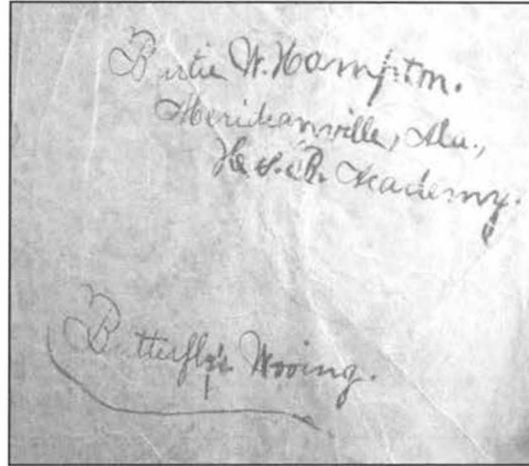 Bertie W. Hampton.
Meridianville, Ala.,
Academy.
Butterfly's Wooing.